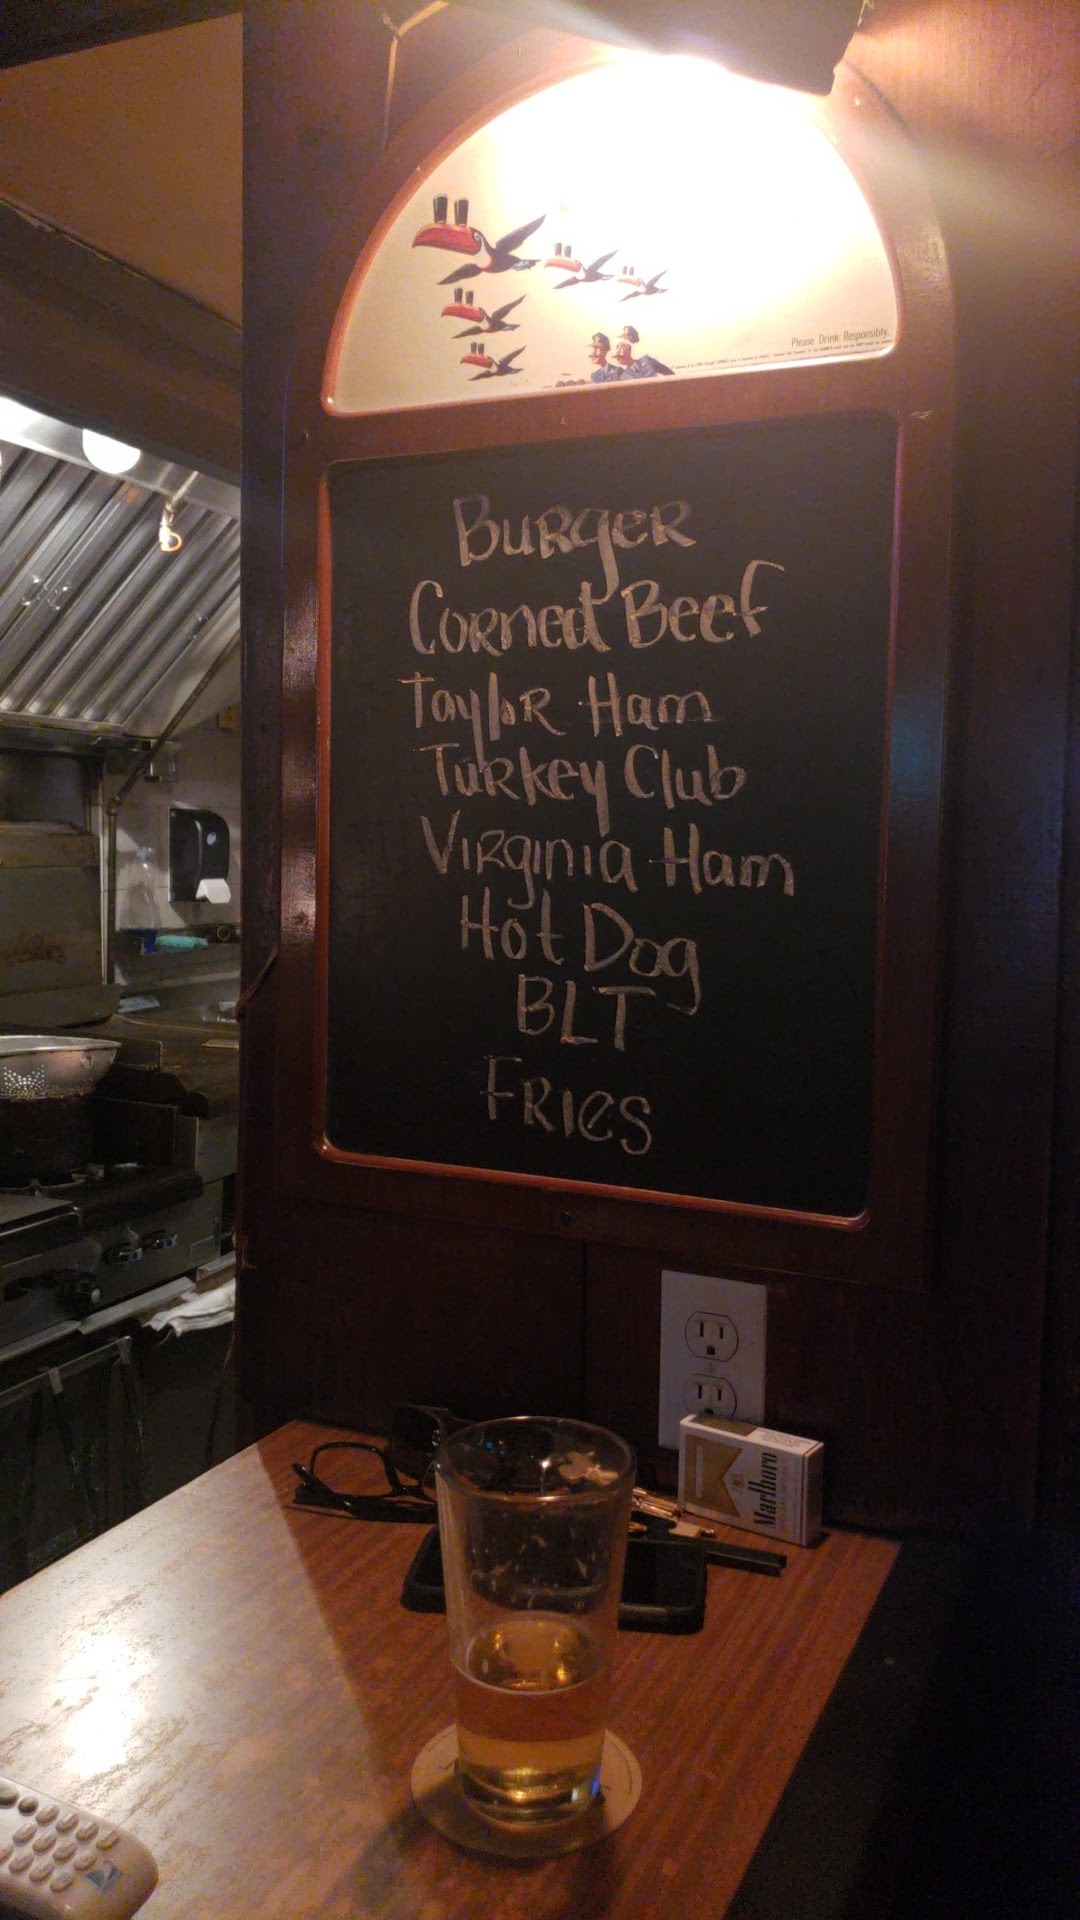 Please Drink Responsibly.
Burger
Corned Beef
Taylor Ham
Turkey Club
Virginia Ham
Hot Dog
BLT
Fries
Marlboro